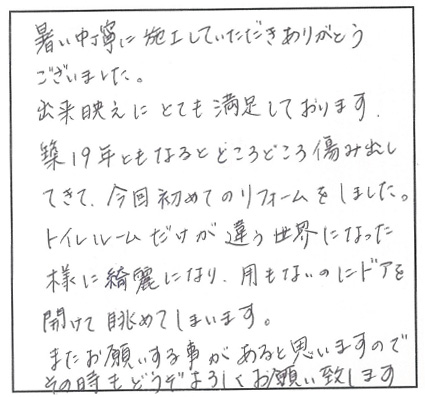 暑い中丁寧に施工していただきありがとう
ございました。
出来映えにとても満足しております.
築19年ともなるとところどころ傷み出し
てきて、今回初めてのリフォームをしました。
トイレルームだけが違う世界になった
様に綺麗になり、用もないのにドアを
開けて眺めてしまいます。
またお願いする事があると思いますので
その時もどうぞよろしくお願い致します